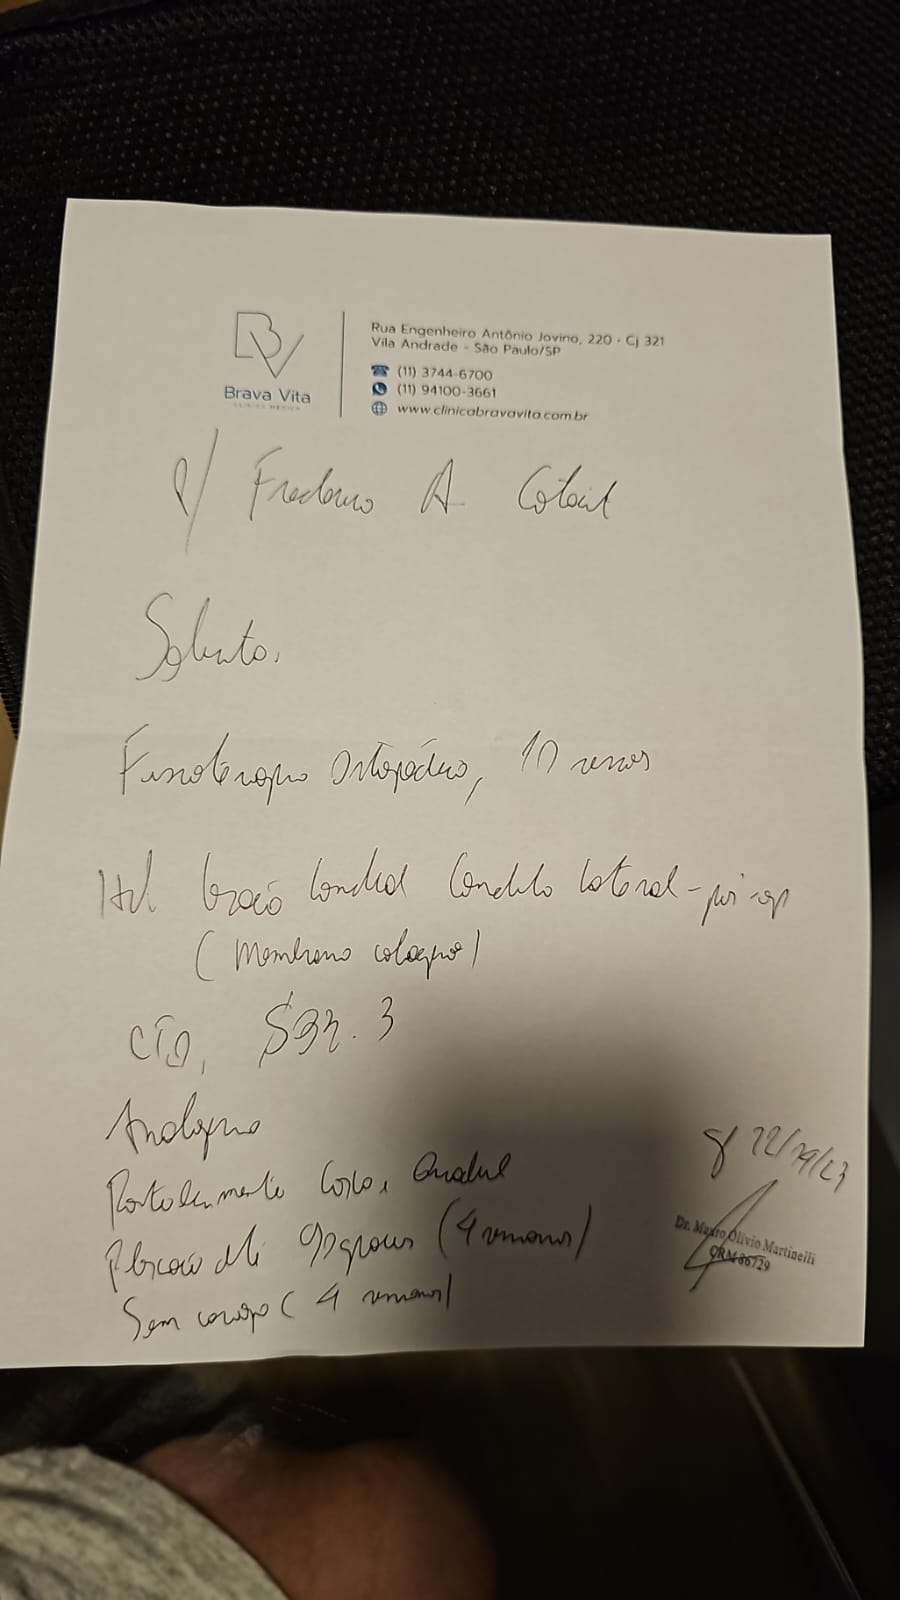 BV
Brava Vita
CLÍNICA MÉDICA
Rua Engenheiro Antônio Jovino, 220 - Cj 321
Vila Andrade - São Paulo/SP
(11) 3744-6700
(11) 94100-3661
www.clinicabravavita.com.br
p/ A
Solicito,
Fisioterapia Ortopédica, 10
Hd lesão condral Condilo lateral -
(Membrana colageno)
CID,
Analgesia
Fortalecimento
Flexão até 90 graus (4 semanas)
Sem carga (4 semanas)
Dr. Mauro Olivio Martinelli
CRM 86729